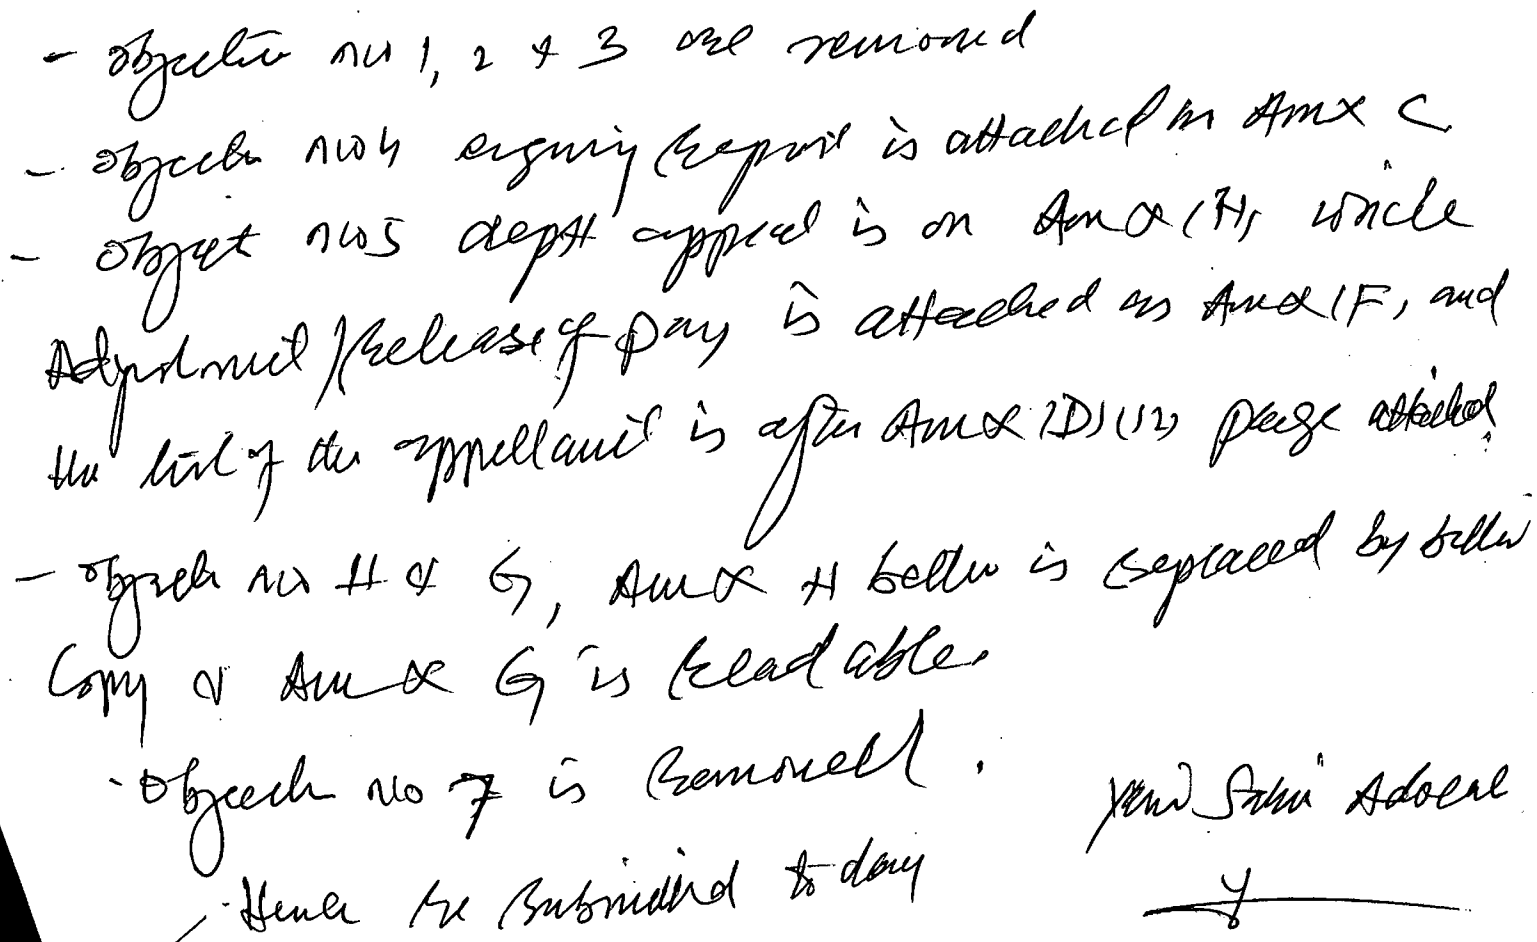 - Objection no 1, 2 & 3 are removed
- Objection no 4 enquiry Report is attached in Anex C
- Object no 5 deptt appeal is on Anex (H), while
Adjustment / Release of pay is attached as Anex (F, and
the list of the appellant is after Anex (D) (12) page attached.
- Objection no H & G, Anex H better is replaced by better
Copy & Anex G is Readable.
- Objection no 7 is Removed.
Hence Re Submitted to day
Advocate